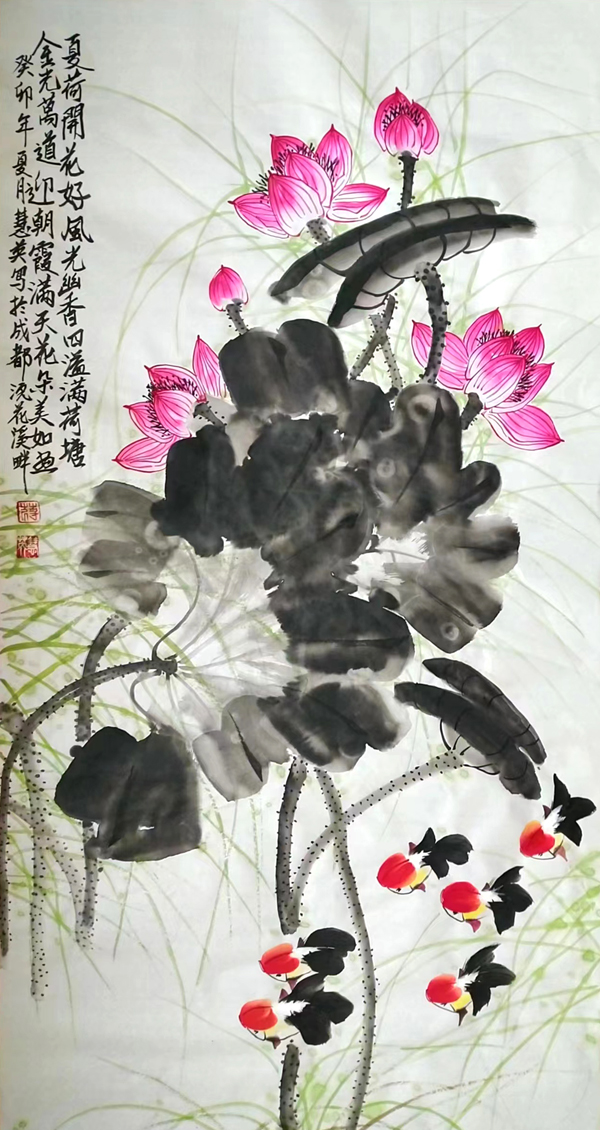 夏荷開花好風光幽香四溢满荷塘
金光萬道迎朝霞满天花朵美如画
癸卯年夏月慧英写於成都浣花溪畔